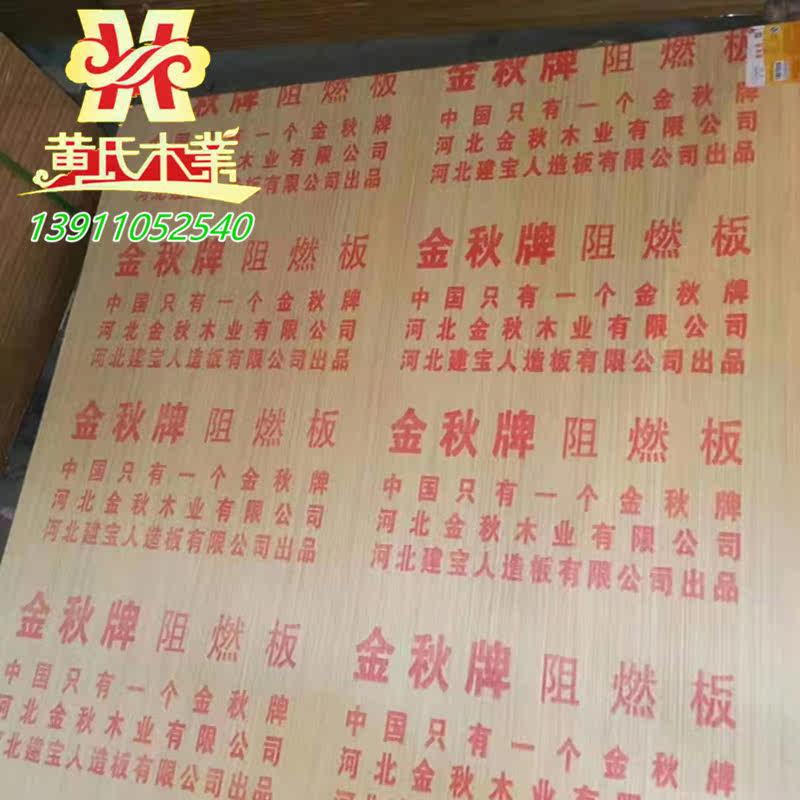 黄氏木業
13911052540
秋牌 阻燃板
国只有一个金秋牌
金秋木业有限公司
河北建宝人造板有限公司出品
金秋牌 阻燃板
中国只有一个金秋牌
河北金秋木业有限公司
河北建宝人造板有限公司出品
金秋牌 阻燃板
中国只有一个金秋牌
河北金秋木业有限公司
河北建宝人造板有限公司出品
金秋牌 阻燃板
中国只有一个金秋牌
河北金秋木业有限公司
河北建宝人造板有限公司出品
金秋牌 阻燃板
中国只有一个金秋牌
河北金秋木业有限公司
河北建宝人造板有限公司出品
金秋牌 阻燃板
中国只有一个金秋牌
河北金秋木业有限公司
河北建宝人造板有限公司出品
金秋牌 阻燃板
中国只有一个金秋牌
河北金秋木业有限公司
河北建宝人造板有限公司出品
金秋牌 阻燃板
中国只有一个金秋牌
河北金秋木业有限公司
河北建宝人造板有限公司